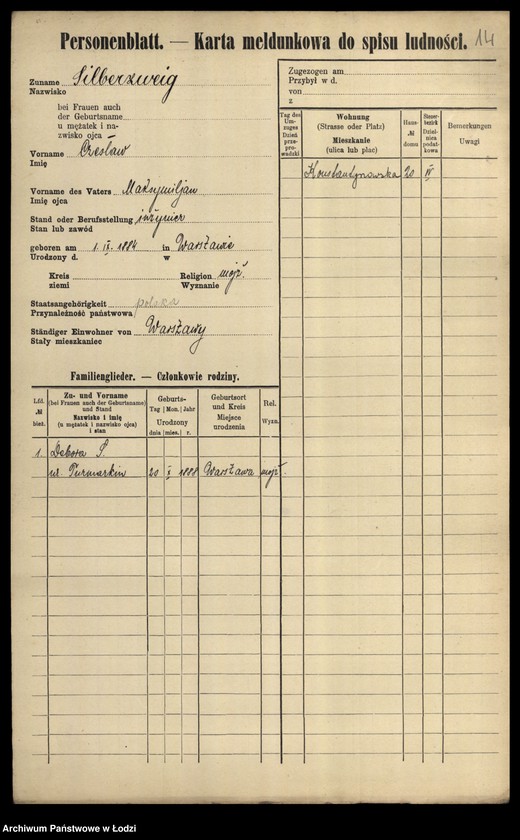 Personenblatt. — Karta meldunkowa do spisu ludności.
14
Zuname Silberzweig
Nazwisko
bei Frauen auch
der Geburtsname
u mężatek i na-
zwisko ojca —
Vorname Czesław
Imię
Vorname des Vaters Maksymiljan
Imię ojca
Stand oder Berufsstellung inżynier
Stan lub zawód
geboren am 1. IX. 1884 in Warszawie
Urodzony d. w
Kreis Religion mojż.
ziemi Wyznanie
Staatsangehörigkeit polska
Przynależność państwowa
Ständiger Einwohner von Warszawy
Stały mieszkaniec
Zugezogen am
Przybył w d.
von
z
Tag des Um-zuges Dzień prze-pro-wadzki
Wohnung (Strasse oder Platz) Mieszkanie (ulica lub plac)
Haus- № domu
Steuer-bezirk Dziel-nica podat-kowa
Bemerkungen Uwagi
Konstantynowska 20 IV
Familienglieder. — Członkowie rodziny.
Lfd. № bież.
Zu- und Vorname (bei Frauen auch der Geburtsname) und Stand Nazwisko i imię (u mężatek i nazwisko ojca) i stan
Geburts- Tag Mon. Jahr Urodzony dnia mies. r.
Geburtsort und Kreis Miejsce urodzenia
Rel. Wyzn.
1. Debora S.
Turmarkin 20 X 1888 Warszawa mojż.
Archiwum Państwowe w Łodzi